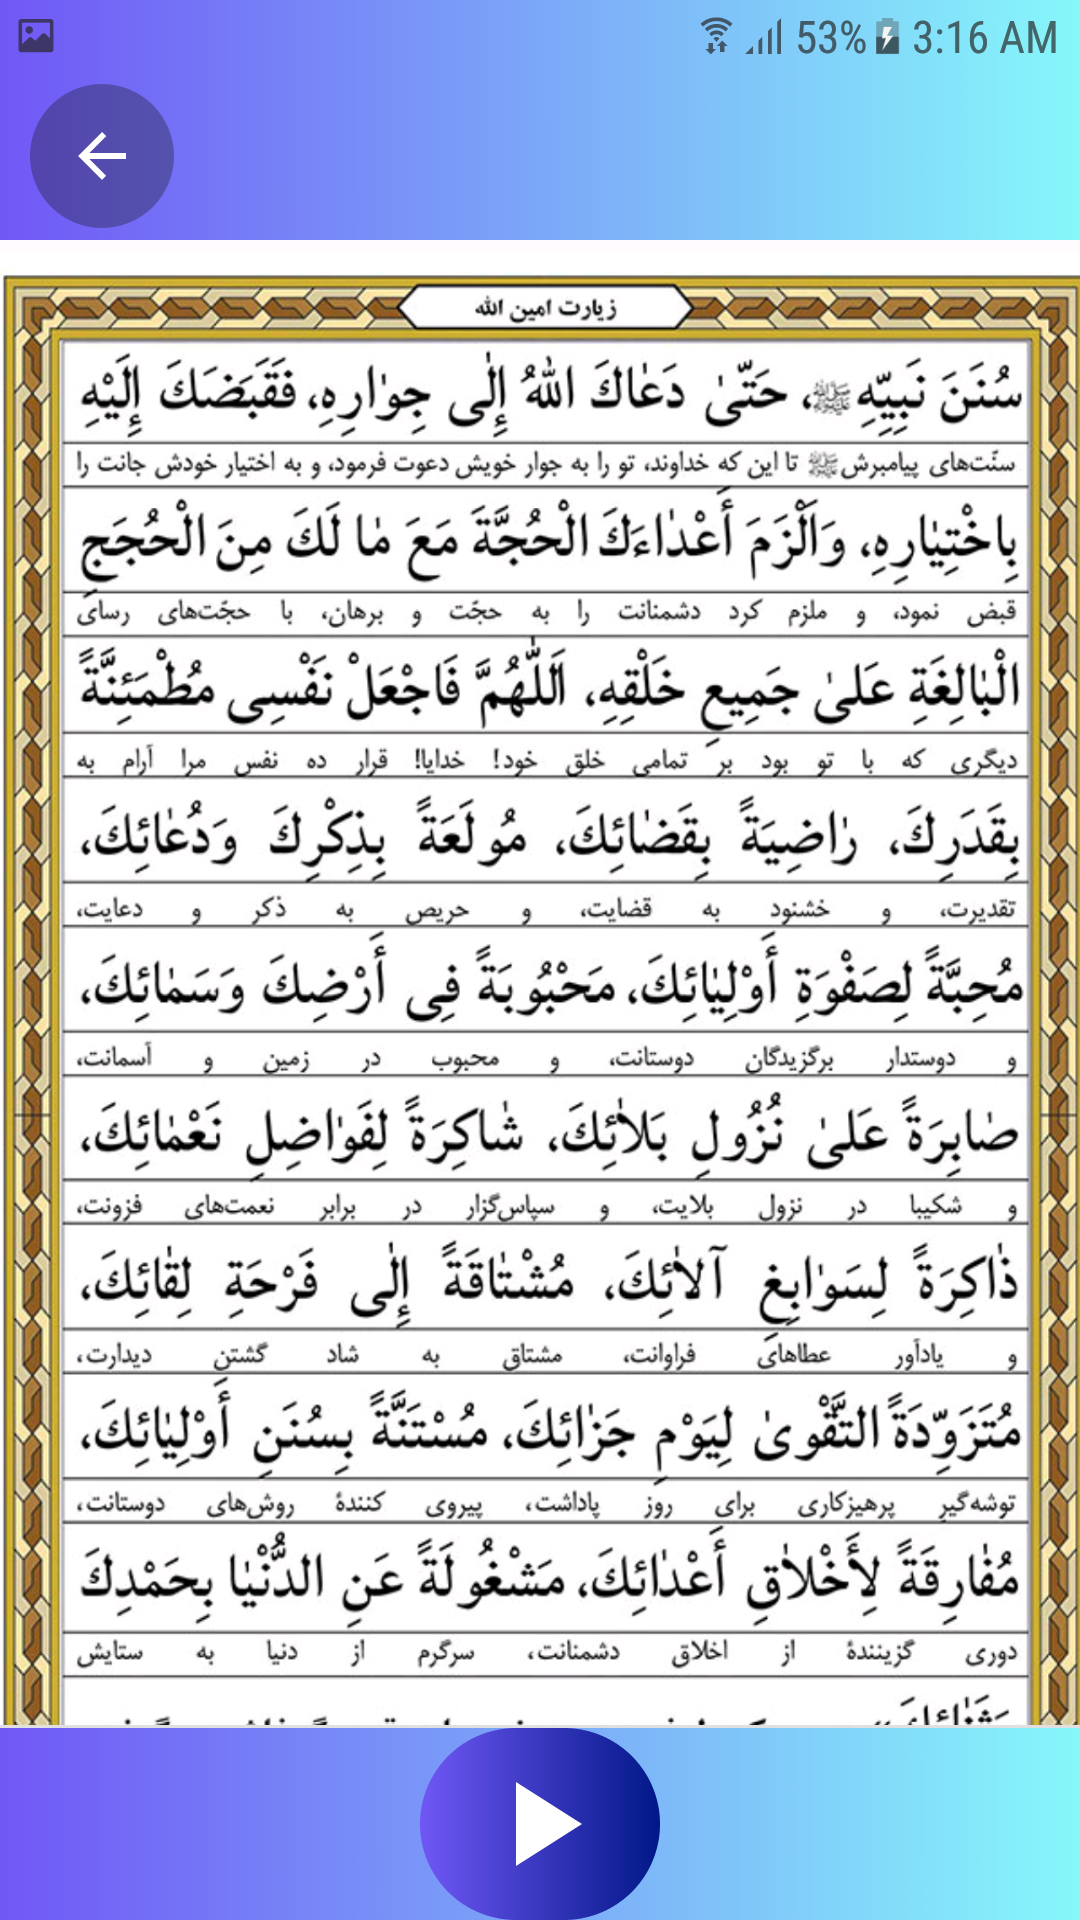 53% 3:16 AM
زیارت امین الله
سُنَنَ نَبِیِّهِ ﷺ، حَتّىٰ دَعٰاكَ اللهُ إِلٰى جِوٰارِهِ، فَقَبَضَكَ إِلَيْهِ
سنّت‌های پیامبرش ﷺ تا این که خداوند، تو را به جوار خویش دعوت فرمود، و به اختیار خودش جانت را
بِاخْتِیٰارِهِ، وَاَلْزَمَ أَعْدٰاءَكَ الْحُجَّةَ مَعَ مٰا لَكَ مِنَ الْحُجَجِ
قبض نمود، و ملزم کرد دشمنانت را به حجّت و برهان، با حجّت‌های رسای
الْبٰالِغَةِ عَلىٰ جَمِیعِ خَلْقِهِ، اَللّٰهُمَّ فَاجْعَلْ نَفْسِی مُطْمَئِنَّةً
دیگری که با تو بود بر تمامی خلق خود! خدایا! قرار ده نفس مرا آرام به
بِقَدَرِكَ، رٰاضِیَةً بِقَضٰائِكَ، مُولَعَةً بِذِكْرِكَ وَدُعٰائِكَ،
تقدیرت، و خشنود به قضایت، و حریص به ذکر و دعایت،
مُحِبَّةً لِصَفْوَةِ أَوْلِیٰائِكَ، مَحْبُوبَةً فِی أَرْضِكَ وَسَمٰائِكَ،
و دوستدار برگزیدگان دوستانت، و محبوب در زمین و آسمانت،
صٰابِرَةً عَلىٰ نُزُولِ بَلاٰئِكَ، شٰاكِرَةً لِفَوٰاضِلِ نَعْمٰائِكَ،
و شکیبا در نزول بلایت، و سپاس‌گزار در برابر نعمت‌های فزونت،
ذٰاكِرَةً لِسَوٰابِغِ آلاٰئِكَ، مُشْتٰاقَةً إِلٰى فَرْحَةِ لِقٰائِكَ،
و یادآور عطاهای فراوانت، مشتاق به شاد گشتنِ دیدارت،
مُتَزَوِّدَةً التَّقْوىٰ لِیَوْمِ جَزٰائِكَ، مُسْتَنَّةً بِسُنَنِ أَوْلِیٰائِكَ،
توشه‌گیر پرهیزکاری برای روز پاداشت، پیروی کنندهٔ روش‌های دوستانت،
مُفٰارِقَةً لِأَخْلاٰقِ أَعْدٰائِكَ، مَشْغُولَةً عَنِ الدُّنْیٰا بِحَمْدِكَ
دوری گزینندهٔ از اخلاق دشمنانت، سرگرم از دنیا به ستایش